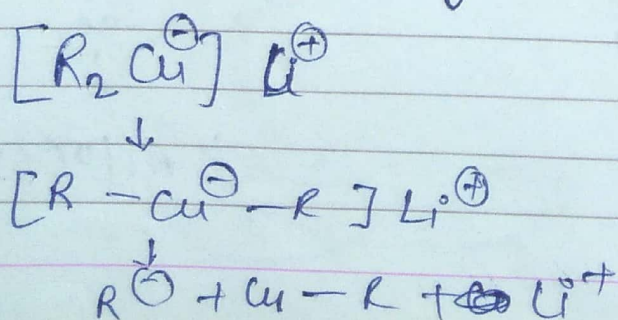 [R₂Cu⊖] Li⊕
↓
[R–Cu⊖–R] Li⊕
↓
R⊖ + Cu–R + Li⁺